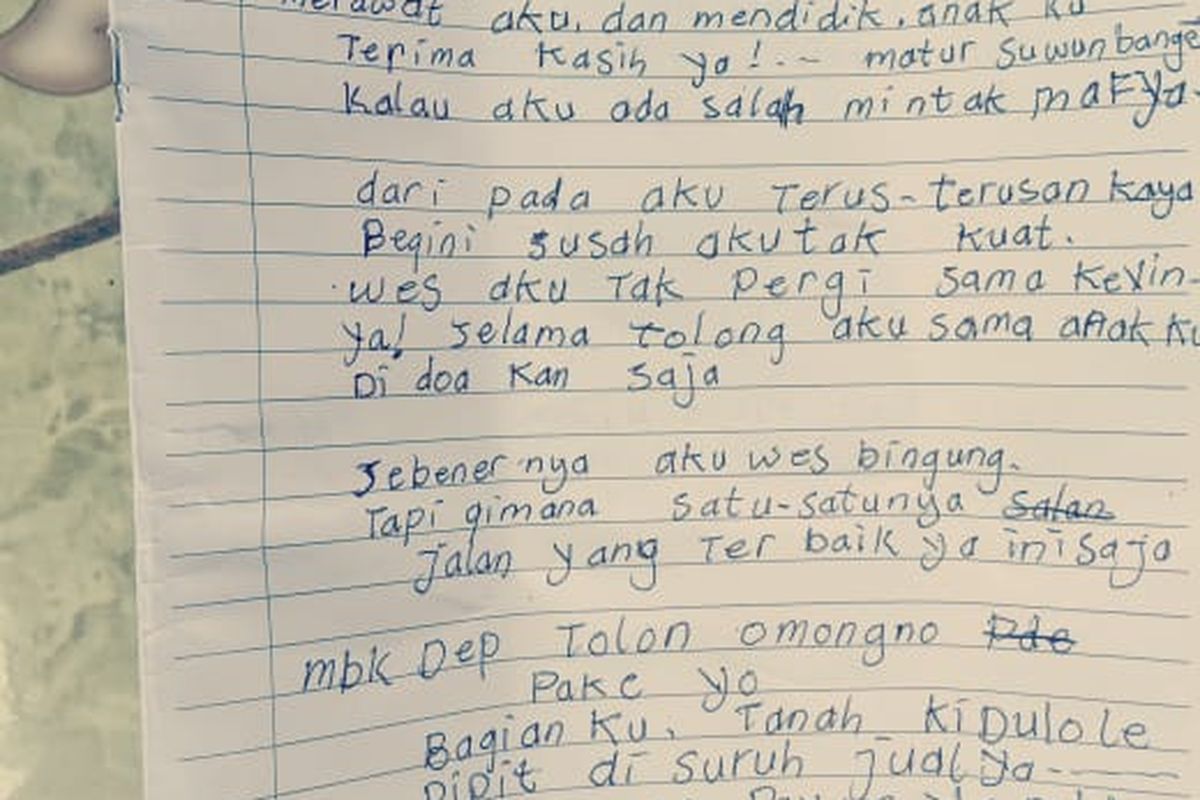 merawat aku, dan mendidik. anak ku
Terima Kasih ya!.-~ matur suwun bange
Kalau aku ada salah mintak maFya-
dari pada aku Terus-terusan kaya
Begini susah aku tak kuat.
wes aku Tak Pergi sama Kevin-
ya! selama tolong aku sama anak ku
Di doa Kan saja
Sebener nya aku wes bingung.
Tapi gimana satu-satunya salan
jalan yang Ter baik ya ini saja
mbk Dep Tolon omongno Pde
Pake yo
Bagian Ku, Tanah KiDulole
Pipit di suruh jual ya-----